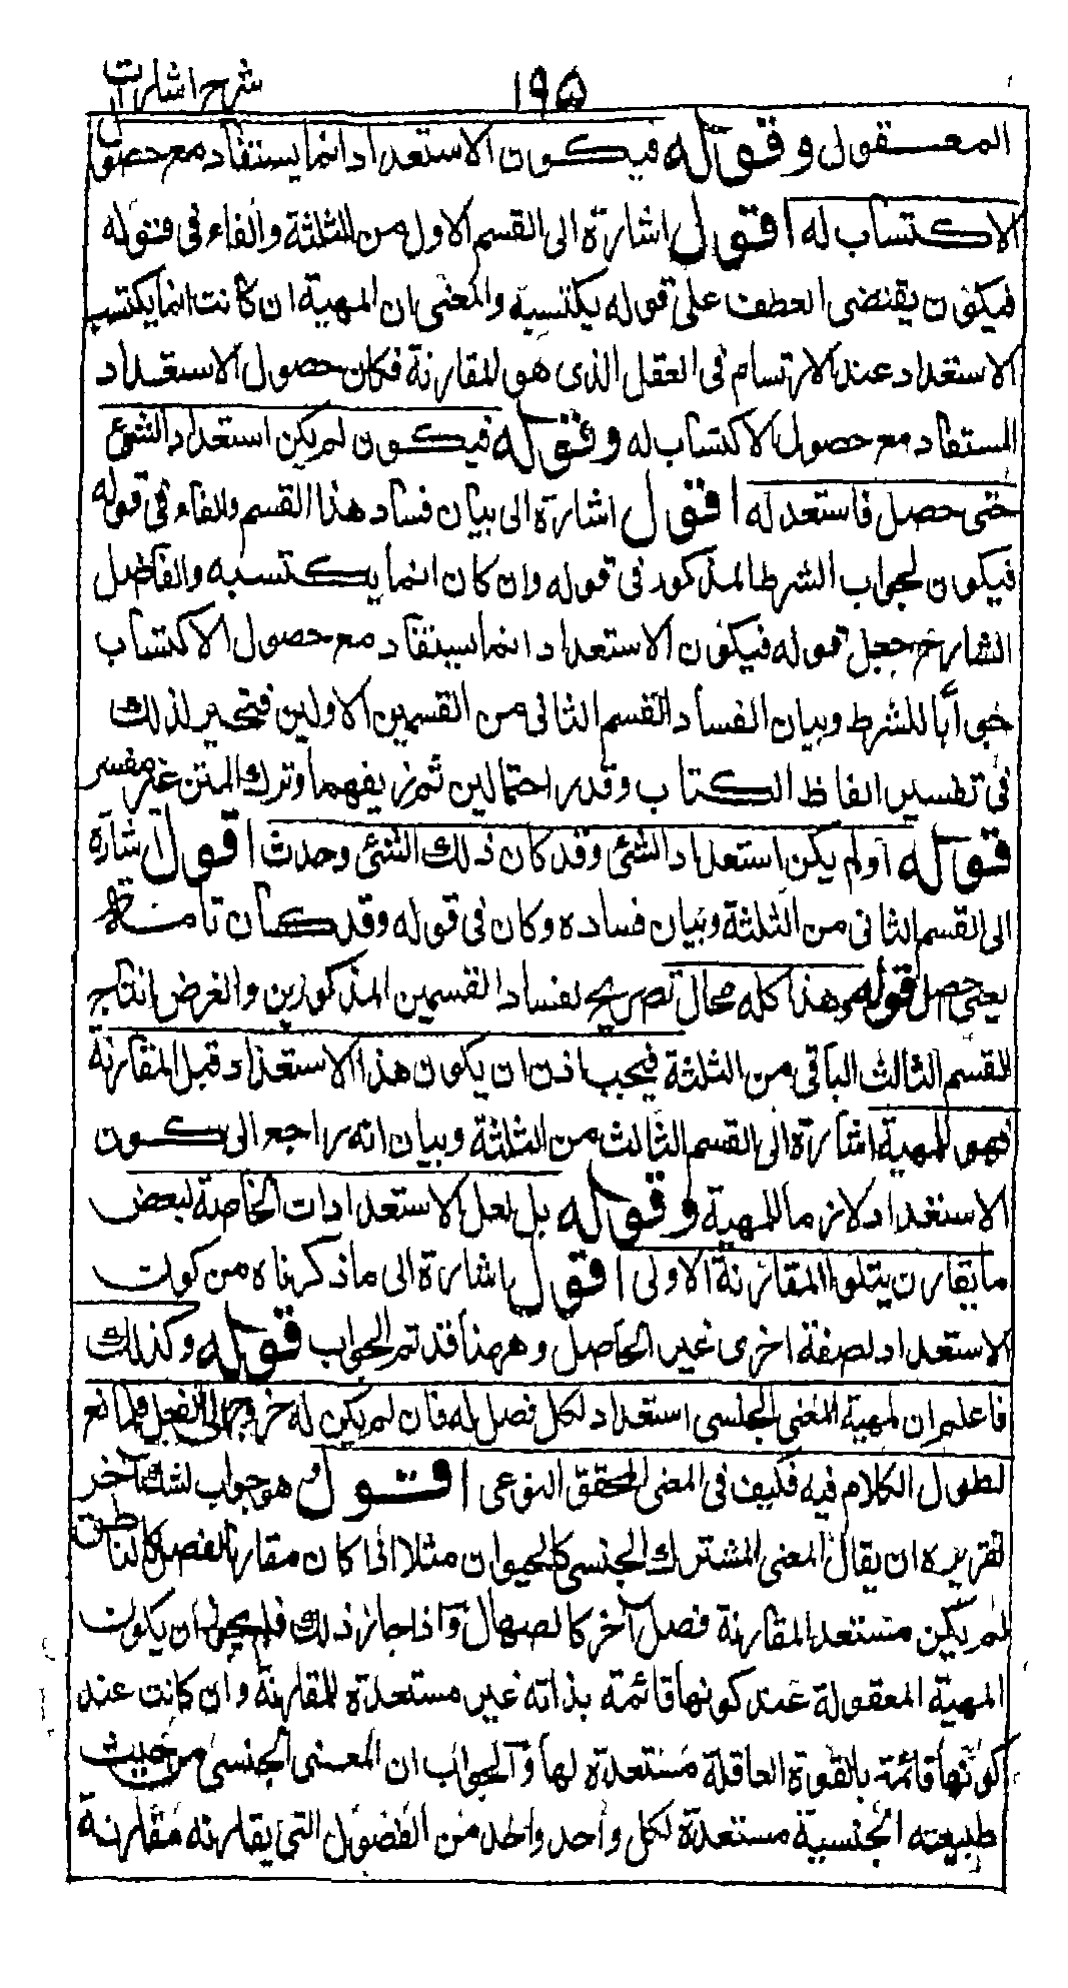 ١٩٥ شرح اشارات
المعقول وقوله فيكون الاستعداد انما يستفاد مع حصول
الاكتساب له اقول اشارة الى القسم الاول من الثلثة والفاء فى قوله
فيكون يقتضى العطف على قوله يكتسبه والمعنى ان المهية ان كانت انما يكتسب
الاستعداد عند الارتسام فى العقل الذى هو المقارنة فكان حصول الاستعداد
المستفاد مع حصول الاكتساب له وقوله فيكون لم يكن استعداد الشئ
حتى حصل فاستعد له اقول اشارة الى بيان فساد هذا القسم والفاء فى قوله
فيكون لجواب الشرط المذكور فى قوله وان كان انما يكتسبه والفاضل
الشارح جعل قوله فيكون الاستعداد انما يستفاد مع حصول الاكتساب
جوابا للشرط وبيان الفساد القسم الثانى من القسمين الاولين فتحير لذلك
فى تفسير الفاظ الكتاب وقدر احتمالين ثم زيفهما وترك المتن غير مفسر
قوله اولم يكن استعداد الشئ وقد كان ذلك الشئ وحدث اقول اشارة
الى القسم الثانى من الثلثة وبيان فساده وكان فى قوله وقد كان تامة
يعنى حصل قوله وهذا كله محال تصريح بفساد القسمين المذكورين والغرض انتاج
القسم الثالث الباقى من الثلثة فيجب اذن ان يكون هذا الاستعداد قبل المقارنة
فهو للمهية اشارة الى القسم الثالث من الثلثة وبيان انه راجع الى كون
الاستعداد لازما للمهية وقوله بل لعل الاستعدادات الخاصة لبعض
ما يقارن يتلوا المقارنة الاولى اقول اشارة الى ما ذكرناه من كون
الاستعداد لصفة اخرى غير الحاصل وههنا قد تم الجواب قوله وكذلك
فاعلم ان لمهية المعنى الجنسى استعداد لكل فصل له فان لم يكن له خروج الى الفعل فلمانع
لطول الكلام فيه فكيف فى المعنى المحقق النوعى اقول هو جواب لشك آخر
تقريره ان يقال المعنى المشترك الجنسى كالحيوان مثلا اذا كان مقارنا لفصل كالناطق
لم يكن مستعدا لمقارنة فصل آخر كالصهال واذا جاز ذلك فلم يجوز ان يكون
المهية المعقولة عند كونها قائمة بذاته غير مستعدة للمقارنة وان كانت عند
كونها قائمة بالقوة العاقلة مستعدة لها والجواب ان المعنى الجنسى من حيث
طبيعته الجنسية مستعدة لكل واحد واحد من الفصول التى يقارنه مقارنة